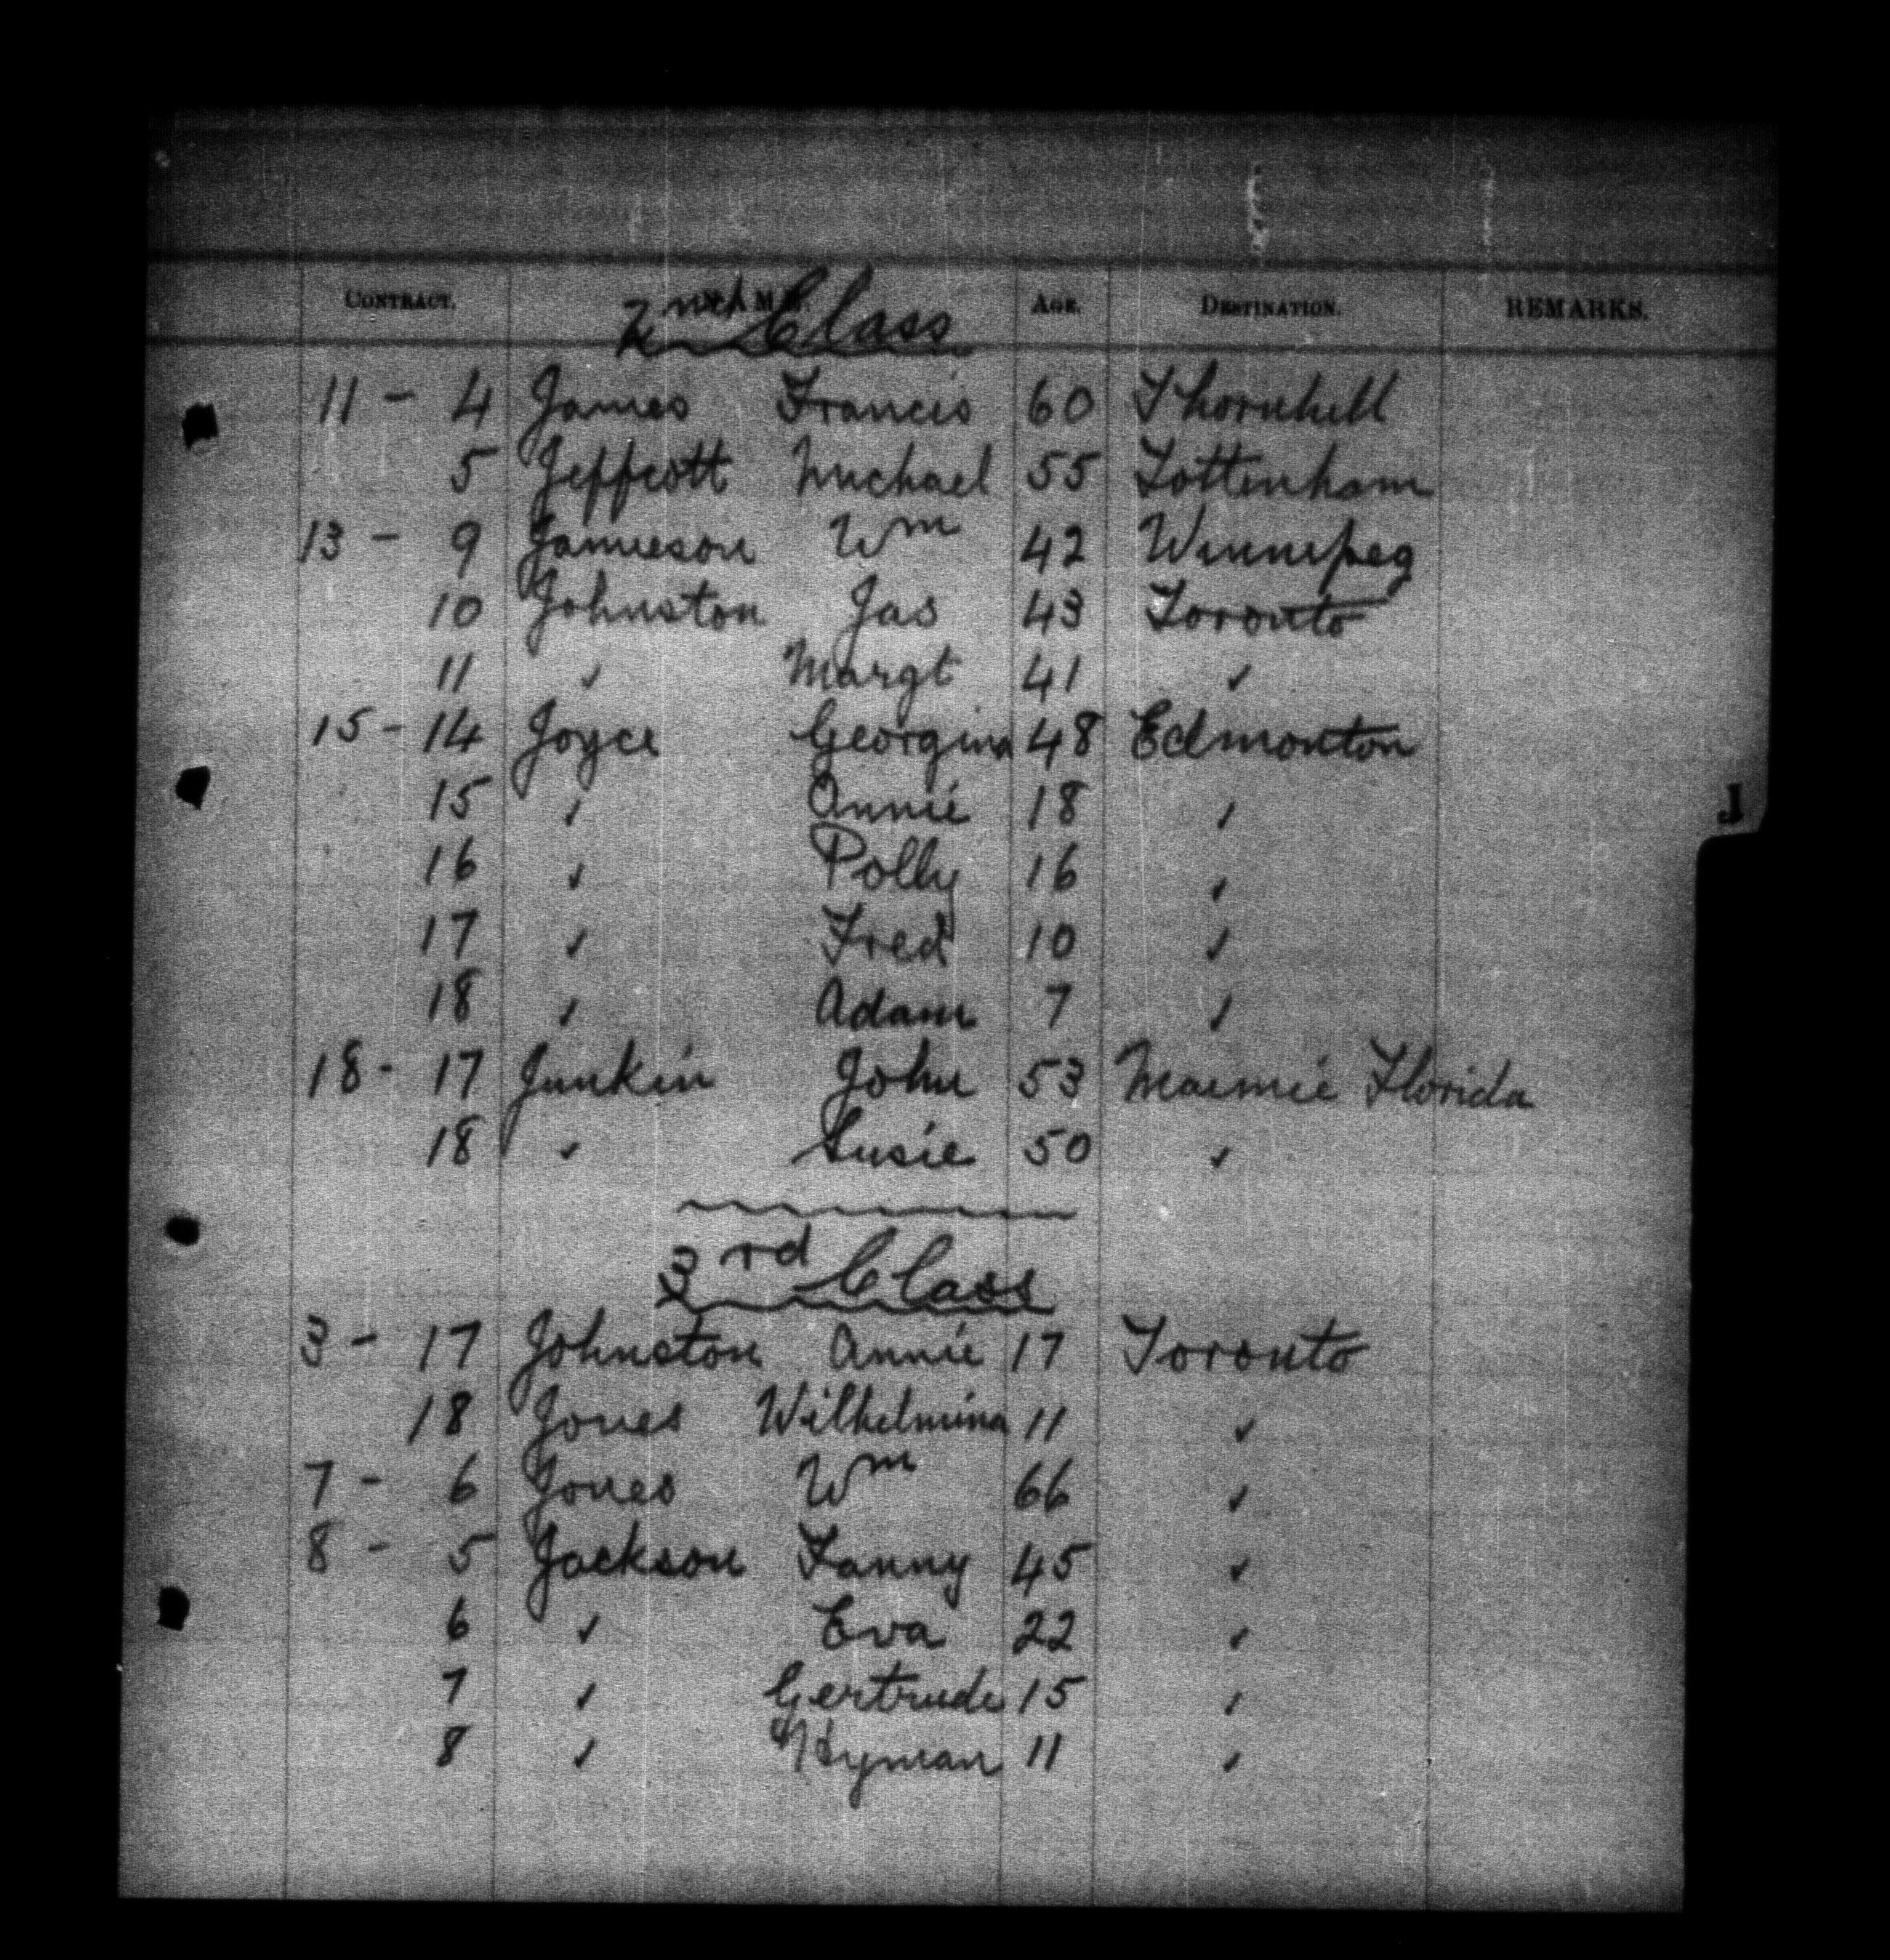 CONTRACT. NAME. AGE. DESTINATION. REMARKS.
2nd Class
11 - 4 James Francis 60 Thornhill
5 Jeffcott Michael 55 Tottenham
13 - 9 Jamieson Wm 42 Winnipeg
10 Johnston Jas 43 Toronto
11 ✓ Margt 41 ✓
15 - 14 Joyce Georgina 48 Edmonton
15 ✓ Annie 18 ✓
16 ✓ Polly 16 ✓
17 ✓ Fred 10 ✓
18 ✓ Adam 7 ✓
J
18 - 17 Junkin John 53 Maimie Florida
18 ✓ Susie 50 ✓
3rd Class
3 - 17 Johnston Annie 17 Toronto
18 Jones Wilhelmina 11 ✓
7 - 6 Jones Wm 66 ✓
8 - 5 Jackson Fanny 45 ✓
6 ✓ Eva 22 ✓
7 ✓ Gertrude 15 ✓
8 ✓ Hyman 11 ✓